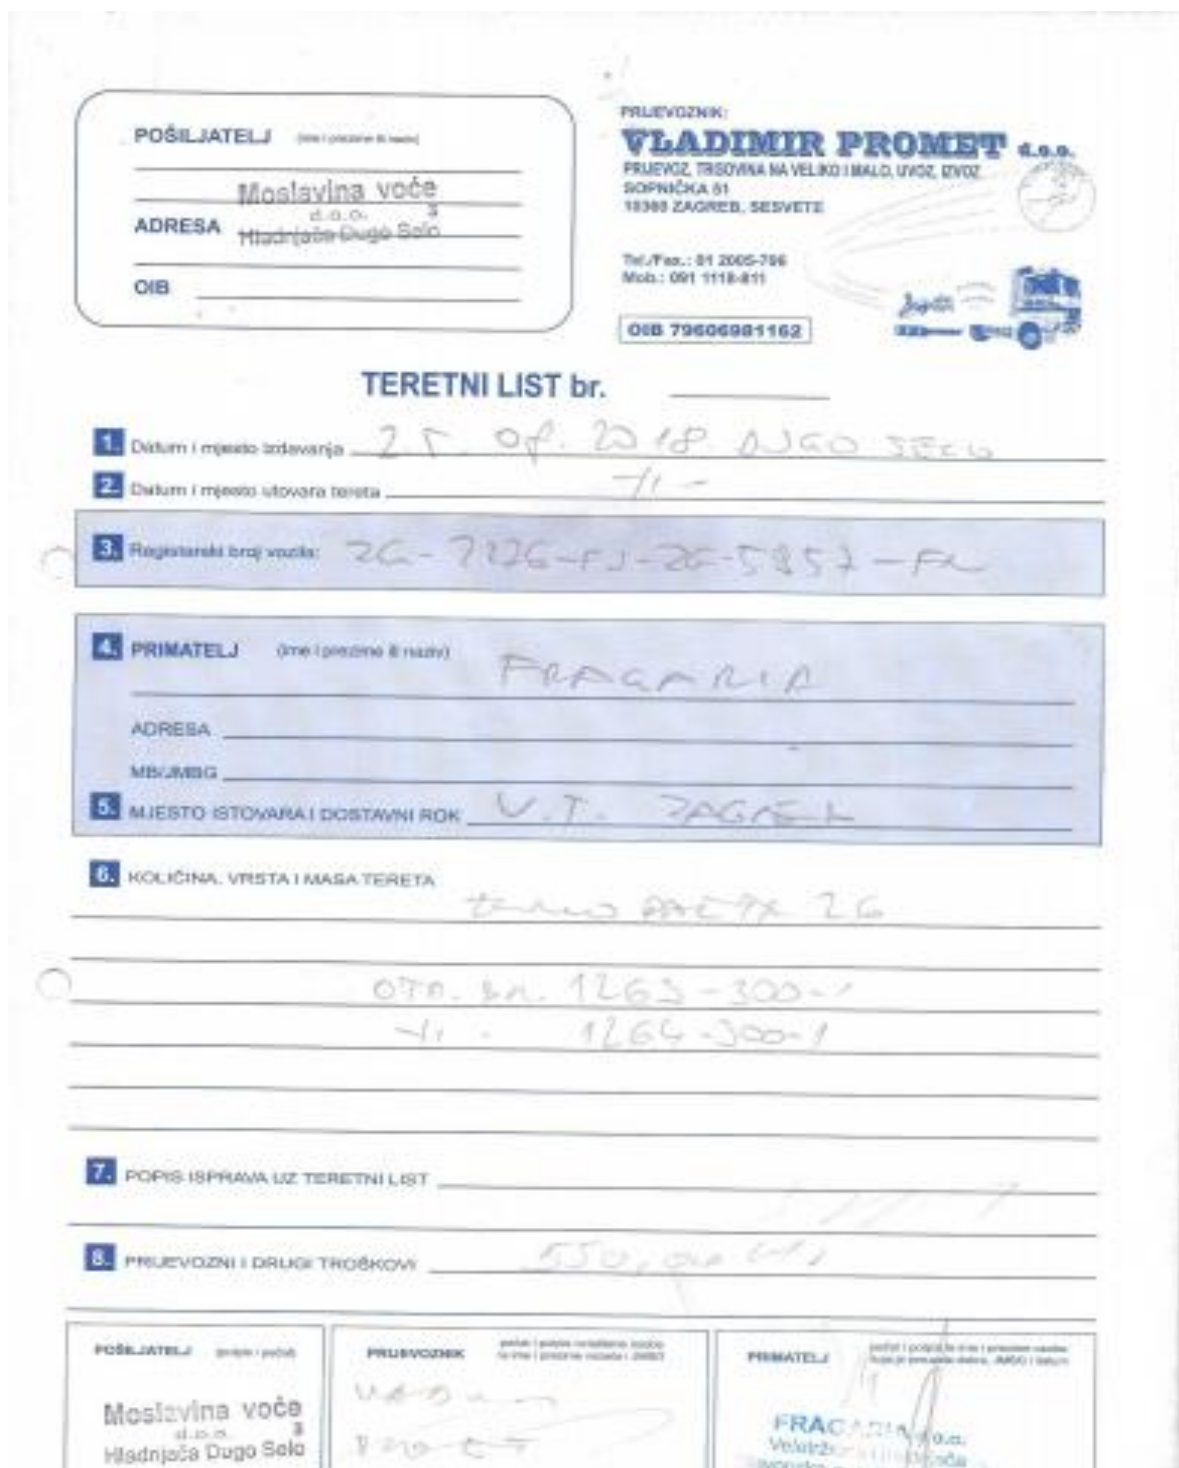 POŠILJATELJ (ime i prezime ili naziv)
Moslavina voće
d.o.o. 3
ADRESA Hladnjača Dugo Selo
OIB
PRIJEVOZNIK:
VLADIMIR PROMET d.o.o.
PRIJEVOZ, TRGOVINA NA VELIKO I MALO, UVOZ, IZVOZ
SOPNIČKA 51
10360 ZAGREB, SESVETE
Tel./Fax.: 01 2005-796
Mob.: 091 1118-811
OIB 79606981162
TERETNI LIST br.
1. Datum i mjesto izdavanja 2018 DUGO SELO
2. Datum i mjesto utovara tereta -/1-
3. Registarski broj vozila: ZG-7226-FJ-ZG-5957-
4. PRIMATELJ (ime i prezime ili naziv) FRAGARIA
ADRESA
MB/JMBG
5. MJESTO ISTOVARA I DOSTAVNI ROK V.T. ZAGREB
6. KOLIČINA, VRSTA I MASA TERETA
ZG
OTP. BR. 1263-300-1
-/1- 1264-300-1
7. POPIS ISPRAVA UZ TERETNI LIST
8. PRIJEVOZNI I DRUGI TROŠKOVI 550,00
POŠILJATELJ (potpis i pečat)
Moslavina voće
d.o.o. 3
Hladnjača Dugo Selo
PRIJEVOZNIK
PRIMATELJ
FRAGARIA d.o.o.